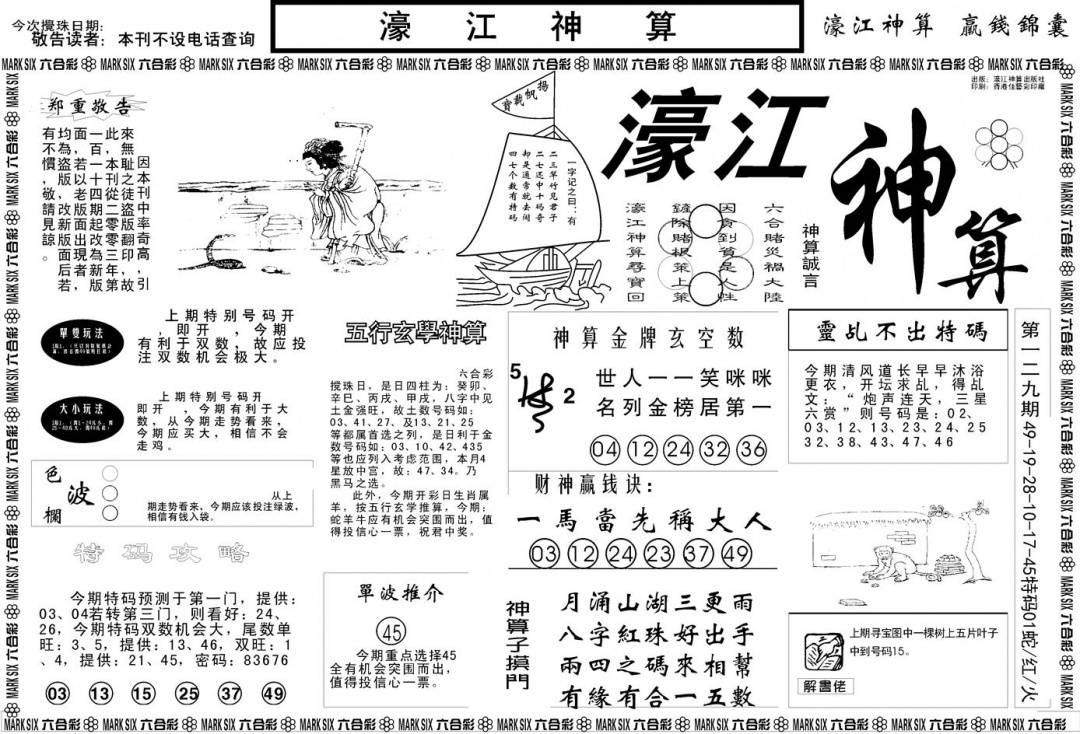 今次攪珠日期:
敬告读者：本刊不设电话查询
濠江神算
濠江神算 贏錢錦囊
MARK SIX 六合彩 MARK SIX 六合彩 MARK SIX 六合彩 MARK SIX 六合彩 MARK SIX 六合彩 MARK SIX 六合彩 MARK SIX 六合彩 MARK SIX 六合彩 MARK SIX 六合彩 MARK SIX 六合彩 MARK SIX 六合彩
出版：濠江神算出版社
印刷：香港佳藝彩印廠
郑重敬告
因本刊中率奇高，引
來無耻之徒盜翻印，故
此，本刊從二零零三年第
一百一十四期起改為新版
面若以老版面出現后，
均為盜版，敬請改版面者若
有不慣，敬請見諒。
揚帆載寶
一字记之曰：有
二三草竹见君子
二七还中十码奇
却是通常就去闯
四七个数有特码
濠江
神算
六合賭災禍大陸
因貪到貧是人性
鏟除賭根策上策
濠江神算尋寶回
神算誠言
單雙玩法
上期特别号码开
，即开　，今期
有利于双数，故应投
注双数机会极大。
大小玩法
上期特别号码开
即开　，今期有利于大
数，从今期走势看来，
今期应买大，相信不会
走鸡。
色波欄
从上
期走势看来，今期应该投注绿波，
相信有钱入袋。
特码攻略
今期特码预测于第一门，提供：
03、04若转第三门，则看好：24、
26，今期特码双数机会大，尾数单
旺：3、5，提供：13、46，双旺：1
、4，提供：21、45，密码：83676
03 13 15 25 37 49
五行玄學神算
六合彩
搅珠日，是日四柱为：癸卯、
辛巳、丙戌、甲戌，八字中见
土金强旺，故土数号码如：
03、41、27、及13、21、25
等都属首选之列，是日利于金
数号码如：03、10、42、435
等也应列入考虑范围，本月4
星放中宫，故：47、34。乃
黑马之选。
此外，今期开彩日生肖属
羊，按五行玄学推算，今期：
蛇羊牛应有机会突围而出，值
得投信心一票，祝君中奖。
單波推介
45
今期重点选择45
全有机会突围而出，
值得投信心一票。
神算金牌玄空数
5
2
世人一一笑咪咪
名列金榜居第一
04 12 24 32 36
财神赢钱诀：
一馬當先稱大人
03 12 24 23 37 49
神算子摸門
月涌山湖三更雨
八字紅珠好出手
兩四之碼來相幫
有緣有合一五數
靈乩不出特碼
今期清风道长早早沐浴
更衣，开坛求乩，得乩
文：“炮声连天，三星
六赏”则号码是：02、
03、12、13、23、24、25
32、38、43、47、46
上期寻宝图中一棵树上五片叶子
中到号码15。
解畫佬
第一二九期49-19-28-10-17-45特码01蛇/红/火
MARK SIX 六合彩 MARK SIX 六合彩 MARK SIX 六合彩 MARK SIX 六合彩 MARK SIX 六合彩 MARK SIX 六合彩 MARK SIX 六合彩 MARK SIX 六合彩 MARK SIX 六合彩 MARK SIX 六合彩 MARK SIX 六合彩